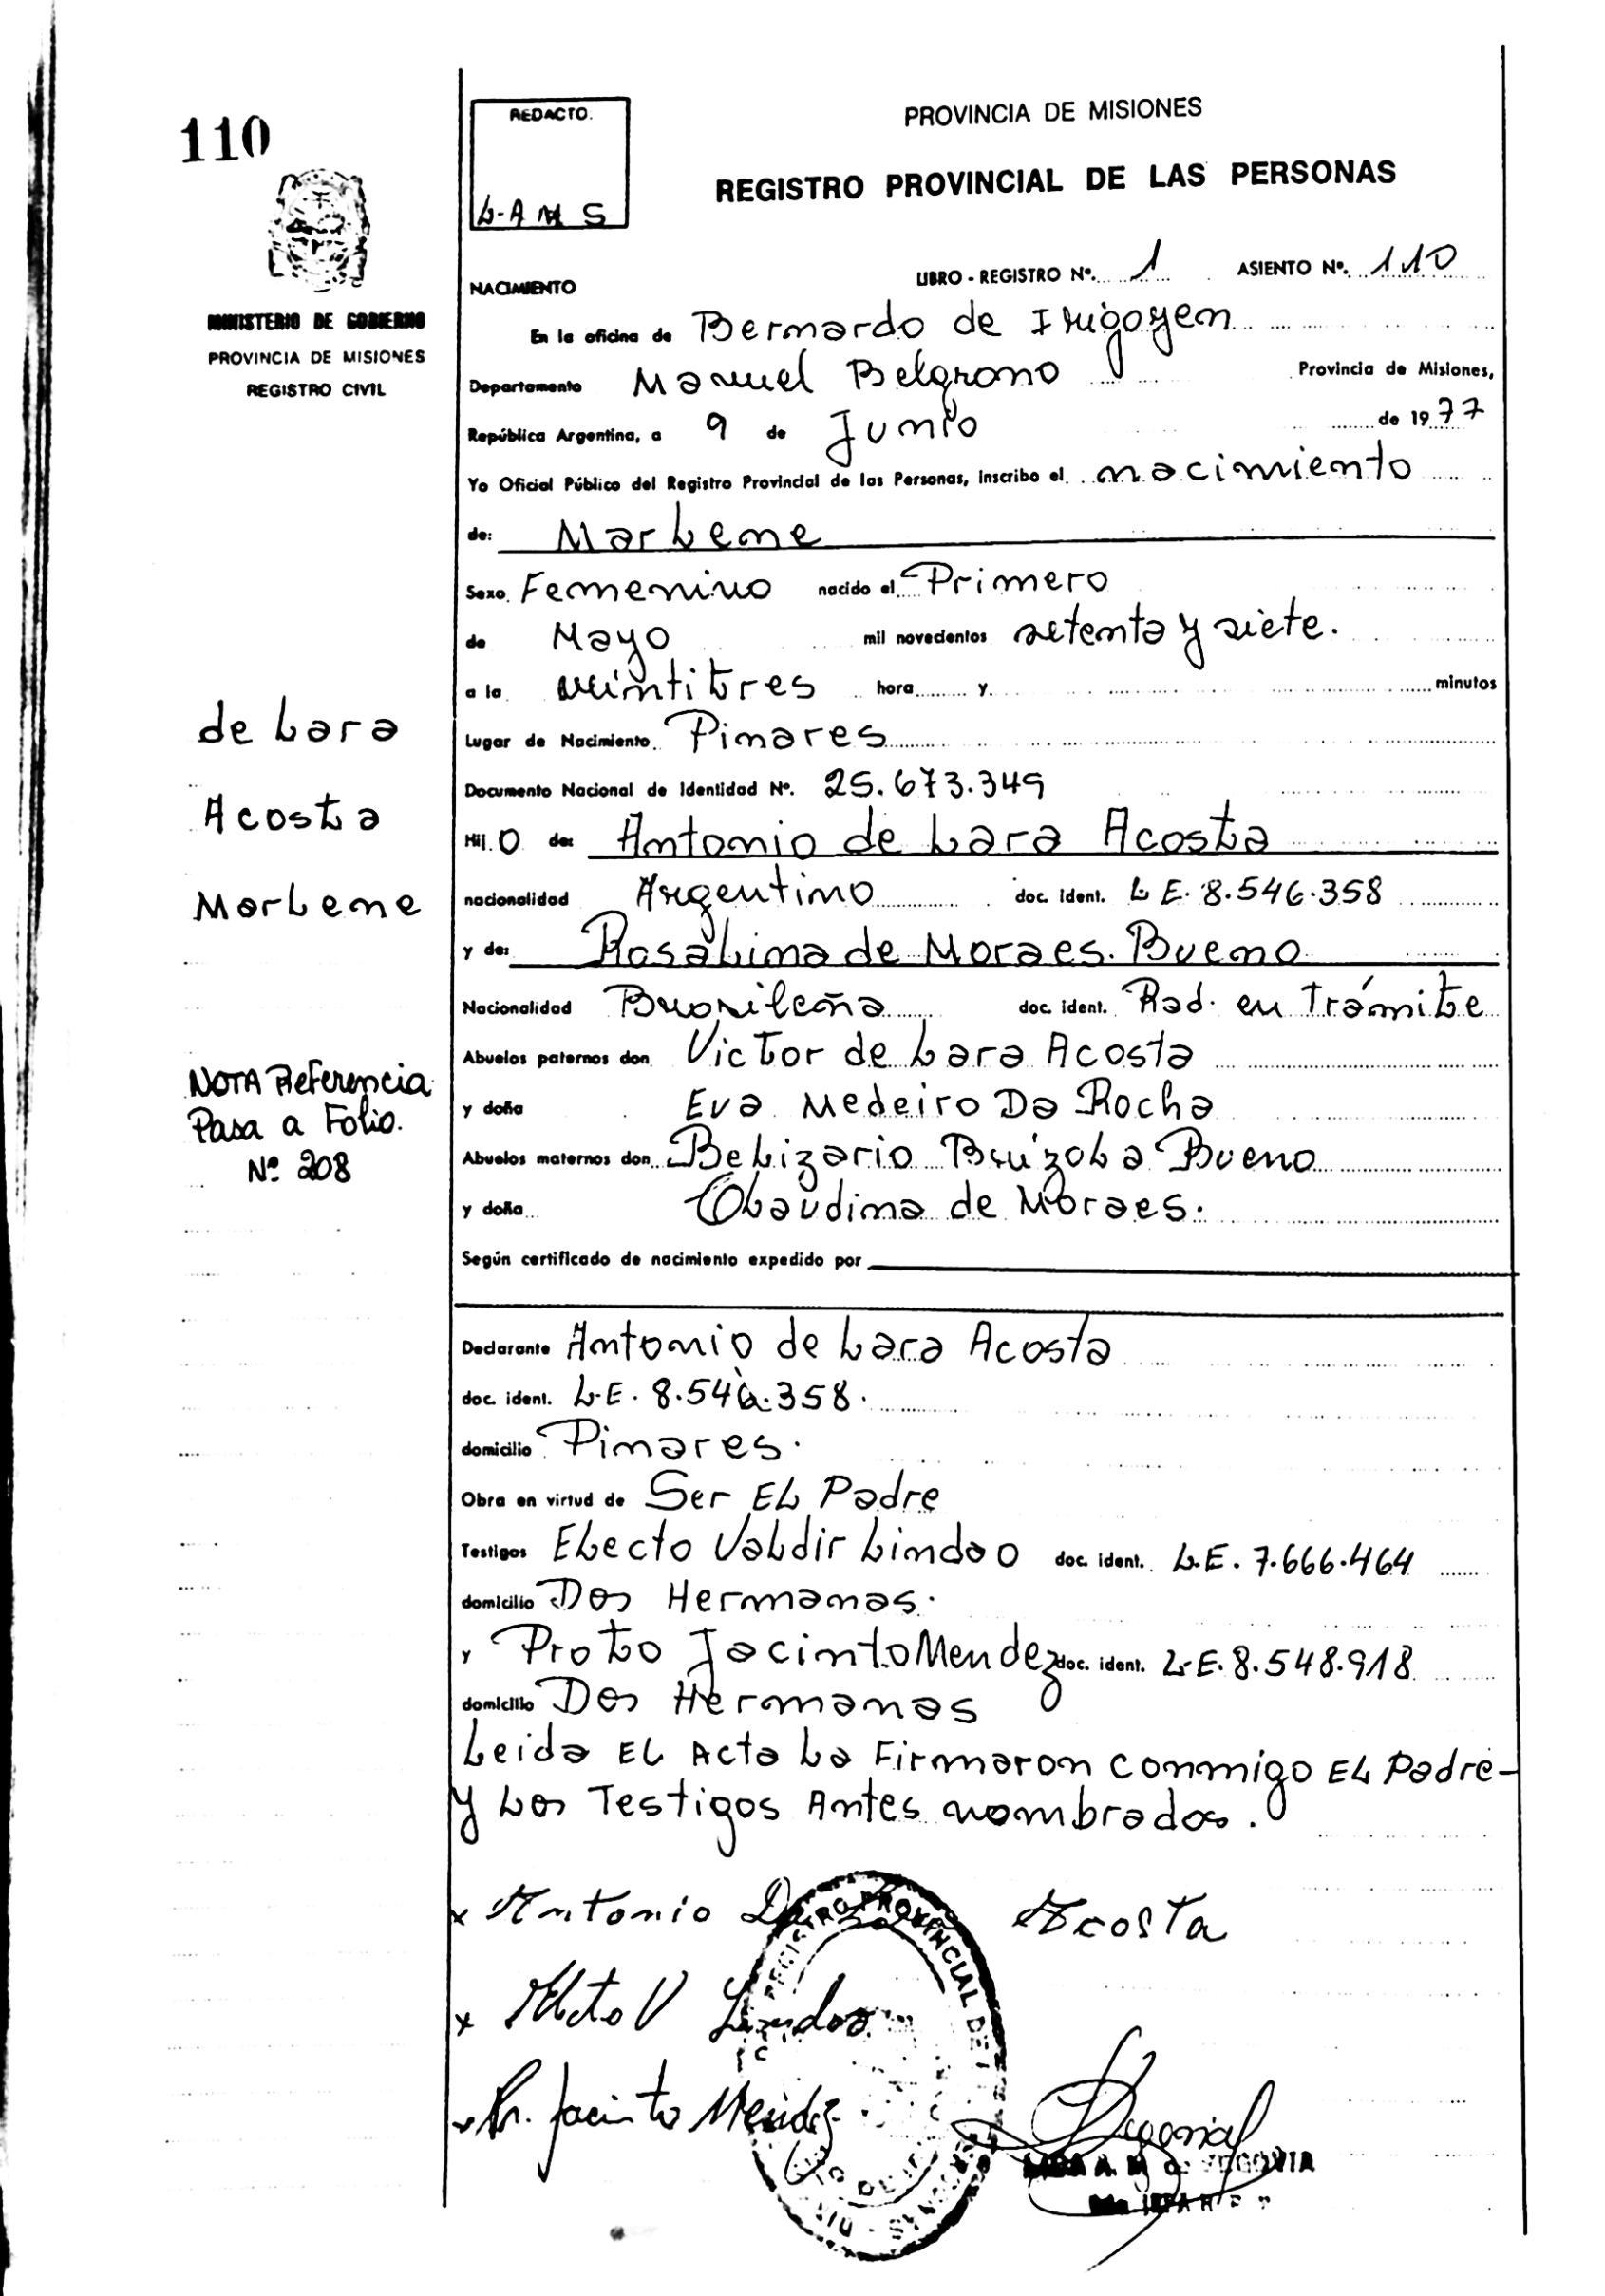 110
REDACTO.
L-A M S
PROVINCIA DE MISIONES
REGISTRO PROVINCIAL DE LAS PERSONAS
MINISTERIO DE GOBIERNO
PROVINCIA DE MISIONES
REGISTRO CIVIL
NACIMIENTO
LIBRO - REGISTRO Nº. 1 ASIENTO Nº. 110
En la oficina de Bernardo de Irigoyen
Departamento Manuel Belgrano Provincia de Misiones,
República Argentina, a 9 de Junio de 1977
Yo Oficial Público del Registro Provincial de las Personas, inscribo el nacimiento
de: Marlene
Sexo Femenino nacido el Primero
de Mayo mil novecientos setenta y siete.
a la veintitres hora y minutos
Lugar de Nacimiento Pinares
Documento Nacional de Identidad Nº. 25.673.349
Hij O de: Antonio de Lara Acosta
nacionalidad Argentino doc. ident. L E. 8.546.358
y de: Rosalina de Moraes. Bueno
Nacionalidad Brasileña doc. ident. Rad. en Trámite
Abuelos paternos don Victor de Lara Acosta
y doña Eva Medeiro Da Rocha
Abuelos maternos don Belizario Brizola Bueno
y doña de Moraes.
Según certificado de nacimiento expedido por
de Lara
Acosta
Marlene
NOTA Referencia
Pasa a Folio.
Nº 208
Declarante Antonio de Lara Acosta
doc. ident. L.E. 8.546.358.
domicilio Pinares.
Obra en virtud de Ser EL Padre
Testigos Electo Valdir Lindao doc. ident. L.E. 7.666.464
domicilio Dos Hermanas.
y Proto Jacinto Mendez doc. ident. L.E. 8.548.918
domicilio Dos Hermanas
Leida EL Acta La Firmaron conmigo EL Padre-
y Los Testigos Antes nombrados.
x Antonio Acosta
x V Lindao
x Pr. Jacinto Mendez
REGISTRO PROVINCIAL DE
SEGOVIA